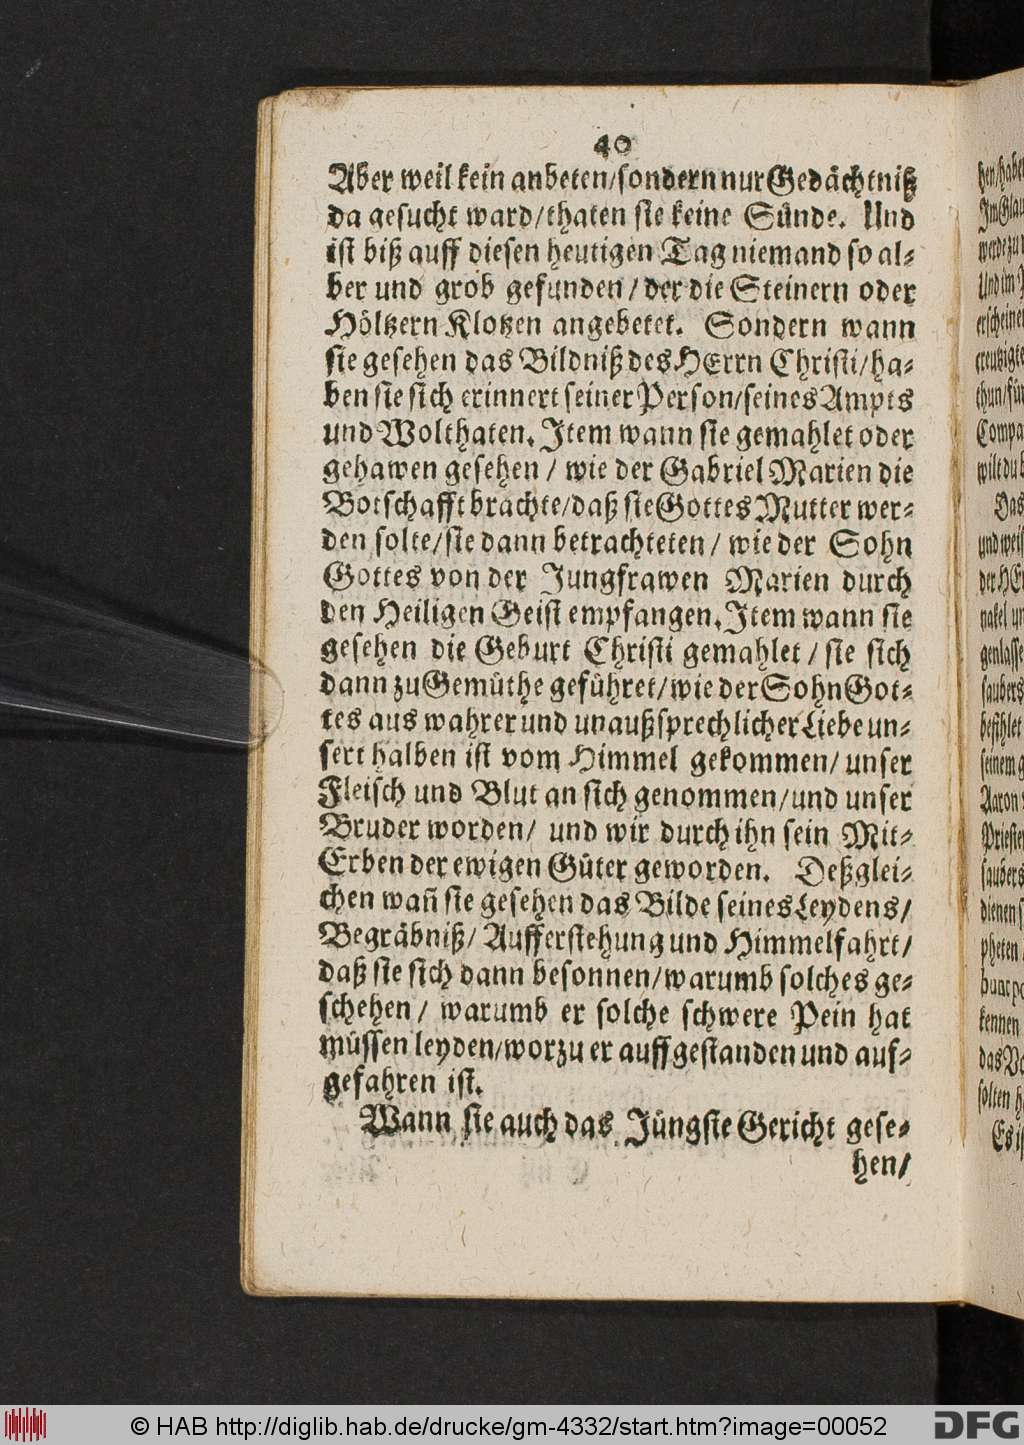 40
Aber weil kein anbeten/sondern nur Gedächtniß
da gesucht ward/thaten sie keine Sünde. Und
ist biß auff diesen heutigen Tag niemand so al-
ber und grob gefunden/der die Steinern oder
Höltzern Klotzen angebetet. Sondern wann
sie gesehen das Bildniß des HErrn Christi/ha-
ben sie sich erinnert seiner Person/seines Ampts
und Wolthaten. Item wann sie gemahlet oder
gehawen gesehen/ wie der Gabriel Marien die
Botschafft brachte/daß sie Gottes Mutter wer-
den solte/sie dann betrachteten/ wie der Sohn
Gottes von der Jungfrawen Marien durch
den Heiligen Geist empfangen. Item wann sie
gesehen die Geburt Christi gemahlet/ sie sich
dann zu Gemüthe geführet/wie der Sohn Got-
tes aus wahrer und unaußsprechlicher Liebe un-
sert halben ist vom Himmel gekommen/ unser
Fleisch und Blut an sich genommen/und unser
Bruder worden/ und wir durch ihn sein Mit-
Erben der ewigen Güter geworden. Deßglei-
chen wañ sie gesehen das Bilde seines Leydens/
Begräbniß/ Aufferstehung und Himmelfahrt/
daß sie sich dann besonnen/warumb solches ge-
schehen/ warumb er solche schwere Pein hat
müssen leyden/worzu er auffgestanden und auf-
gefahren ist.
Wann sie auch das Jüngste Gericht gese-
hen/
© HAB http://diglib.hab.de/drucke/gm-4332/start.htm?image=00052
DFG